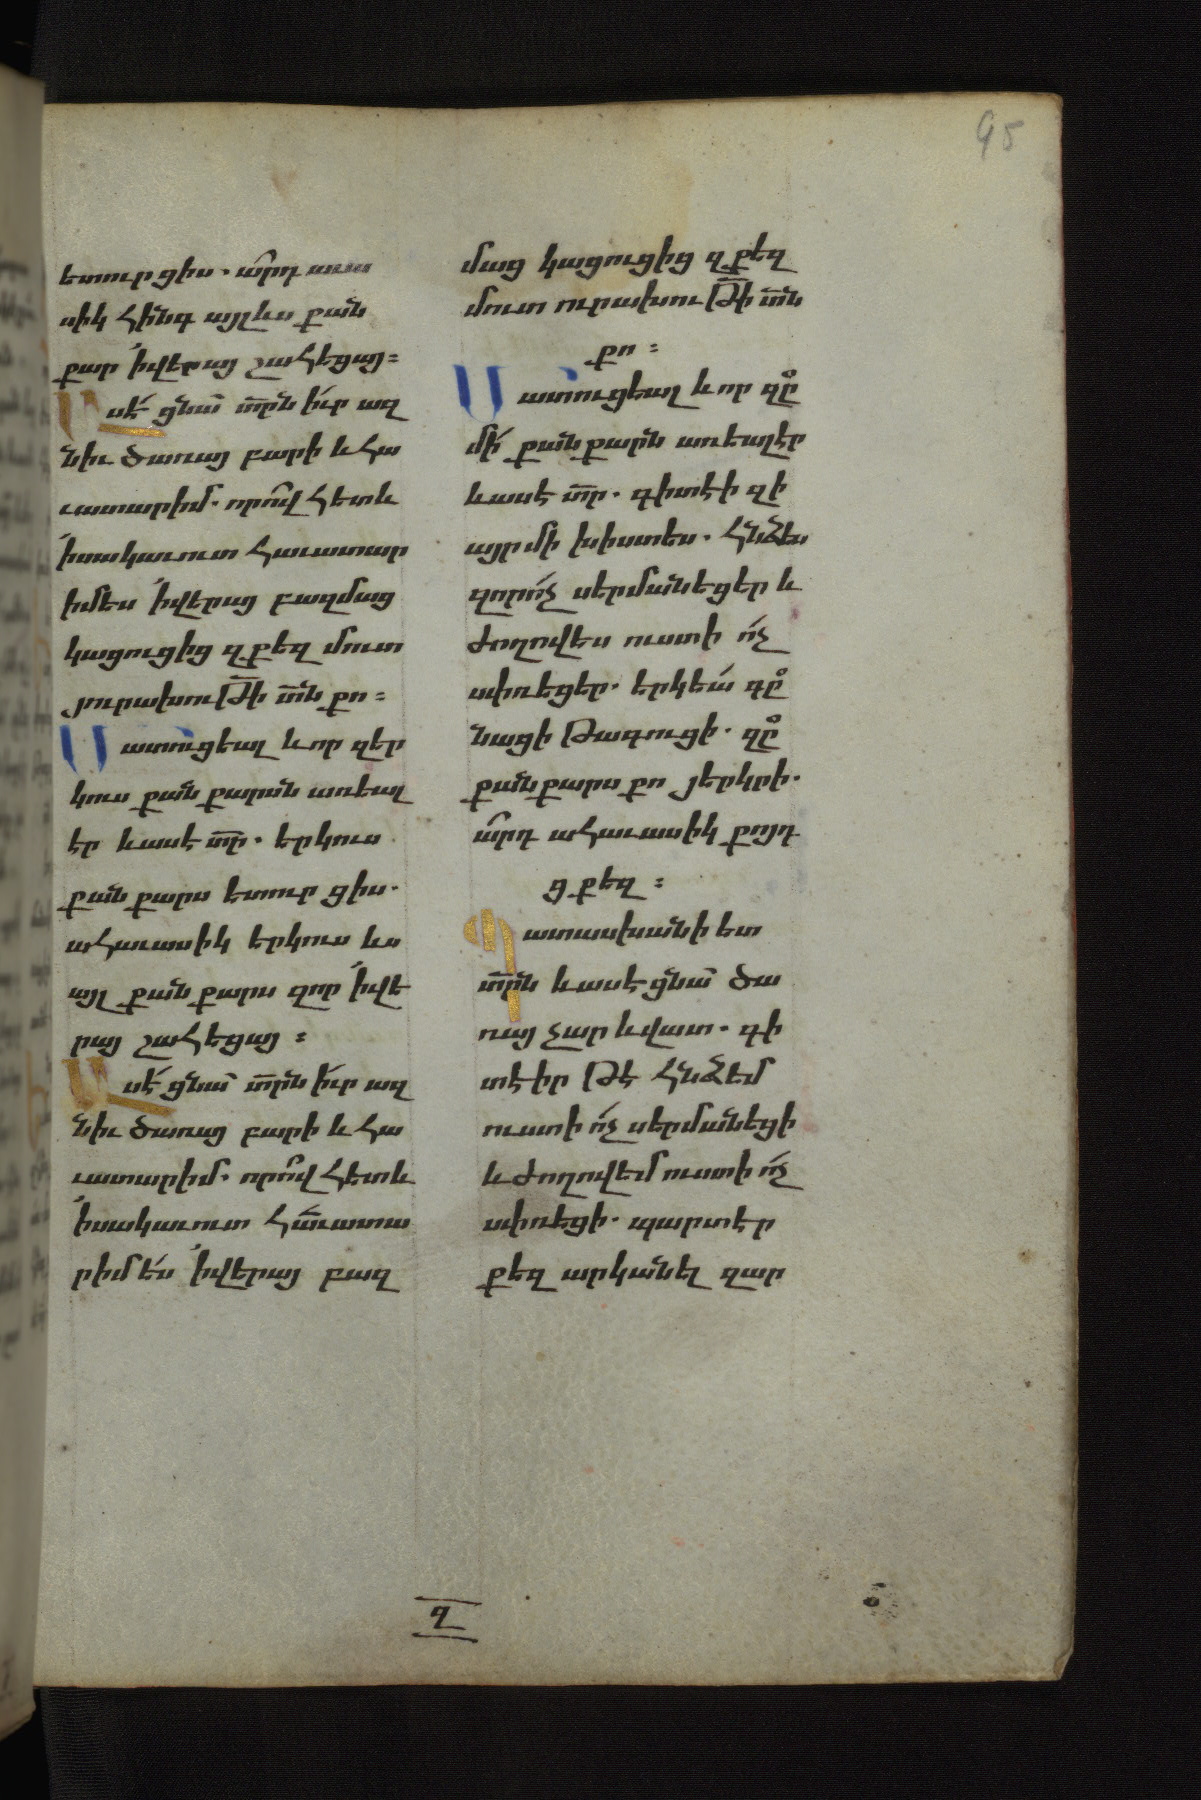 95
ետուր ցիս. ա՟րդ աւա
սիկ հինգ այլևս քան
քար ՚ի վերայ շահեցայ։
Ասէ՛ ցնա՟ տ՟րն ի՛ւր ազ
նիւ ծառայ բարի և հա
ւատարիմ. որո՟վ հետև
՚ի սակաւուտ հաւատար
իմես ՚ի վերայ բազմաց
կացուցից զքեզ մուտ
յուրախուԹի՟ տ՟ն քո։
Մատուցեալ և որ զեր
կուս քան քարան առեալ
էր և ասէ տ՟ր. երկուս
քան քարս ետուր ցիս.
ահաւասիկ երկուս ևս
այլ քան քարս զոր ՚ի վե
րայ շահեցայ։
Ասէ՛ ցնա՟ տ՟րն ի՛ւր ազ
նիւ ծառայ բարի և հա
ւատարիմ. որո՟վ հետև
՚ի սակաւուտ հա՟ւատա
րիմ ե՛ս ՚ի վերայ բազ
մաց կացուցից զքեզ
մուտ ուրախուԹի՟ տ՟ն
քո։
Մատուցեալ և որ զը՟
մի՛ քան քարն առեալէր
և ասէ տ՟ր. գիտէի զի
այր մի խիստես. հնձես
զոր ո՛չ սերմանեցեր և
ժողովես ուստի ո՛չ
սփռեցեր. երկեա՛ գը՟
նացի Թագուցի. զը՟
քան քարս քո յերկրի.
ա՟րդ ահաւասիկ քոյդ
ց քեզ։
Պատասխանի ետ
տ՟րն և ասէ ցնա՟ ծա
ռայ չար և վատ. գի
տէիր Թէ հնձեմ
ուստի ո՛չ սերմանեցի
և ժողովեմ ուստի ո՛չ
սփռեցի. պարտէր
քեզ արկանել զար
զ